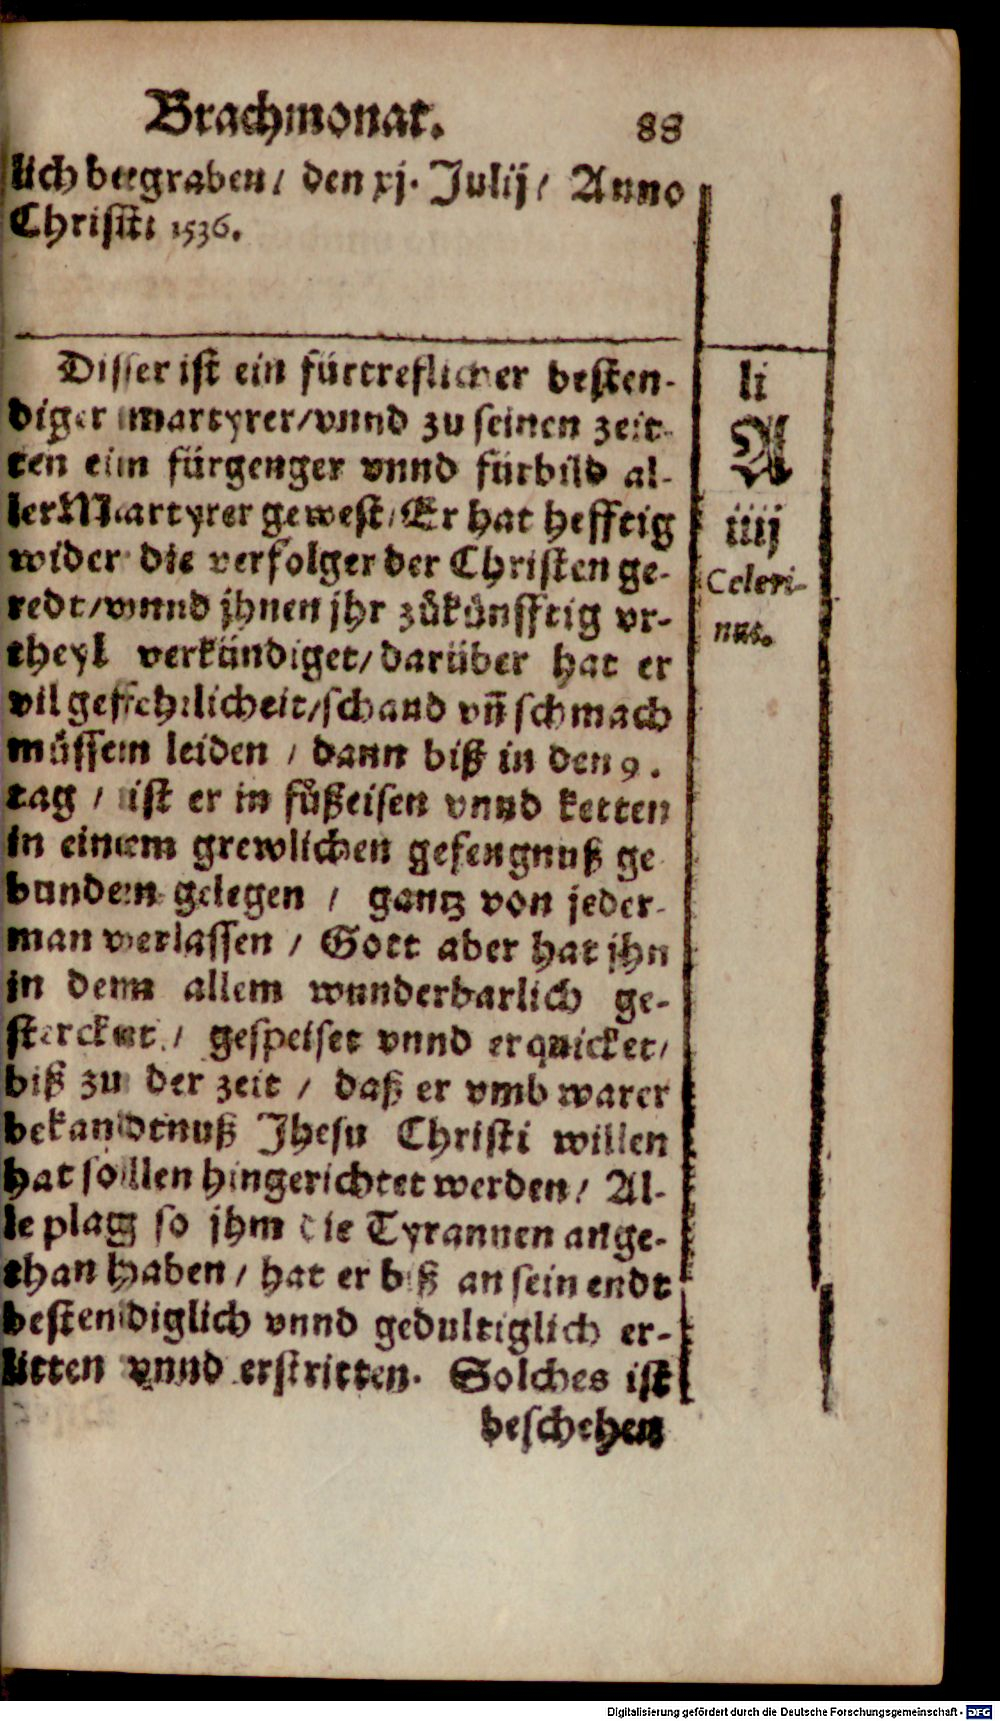 Brachmonat. 88
lich begraben / den xj. Julij / Anno
Christi 1536.
Disser ist ein fürtreflicher besten-
diger martyrer / vnnd zu seinen zeit-
ten ein fürgenger vnnd fürbild al-
ler Martyrer gewest / Er hat hefftig
wider die verfolger der Christen ge-
redt / vnnd jhnen jhr zůkůnfftig vr-
theyl verkündiget / darüber hat er
vil gefehrlicheit / schand vñ schmach
müssen leiden / dann biß in den 9.
tag / ist er in fůßeisen vnnd ketten
in einem grewlichen gefengnuß ge
bunden gelegen / gantz von jeder-
man verlassen / Gott aber hat jhn
in dem allem wunderbarlich ge-
stercket / gespeiset vnnd erquicket /
biß zu der zeit / daß er vmb warer
bekandtnuß Jhesu Christi willen
hat sollen hingerichtet werden / Al-
le plag so jhm die Tyrannen ange-
than haben / hat er biß an sein endt
bestendiglich vnnd gedultiglich er-
litten vnnd erstritten. Solches ist
beschehen
li
A
iiij
Celeri-
nus.
Digitalisierung gefördert durch die Deutsche Forschungsgemeinschaft - DFG